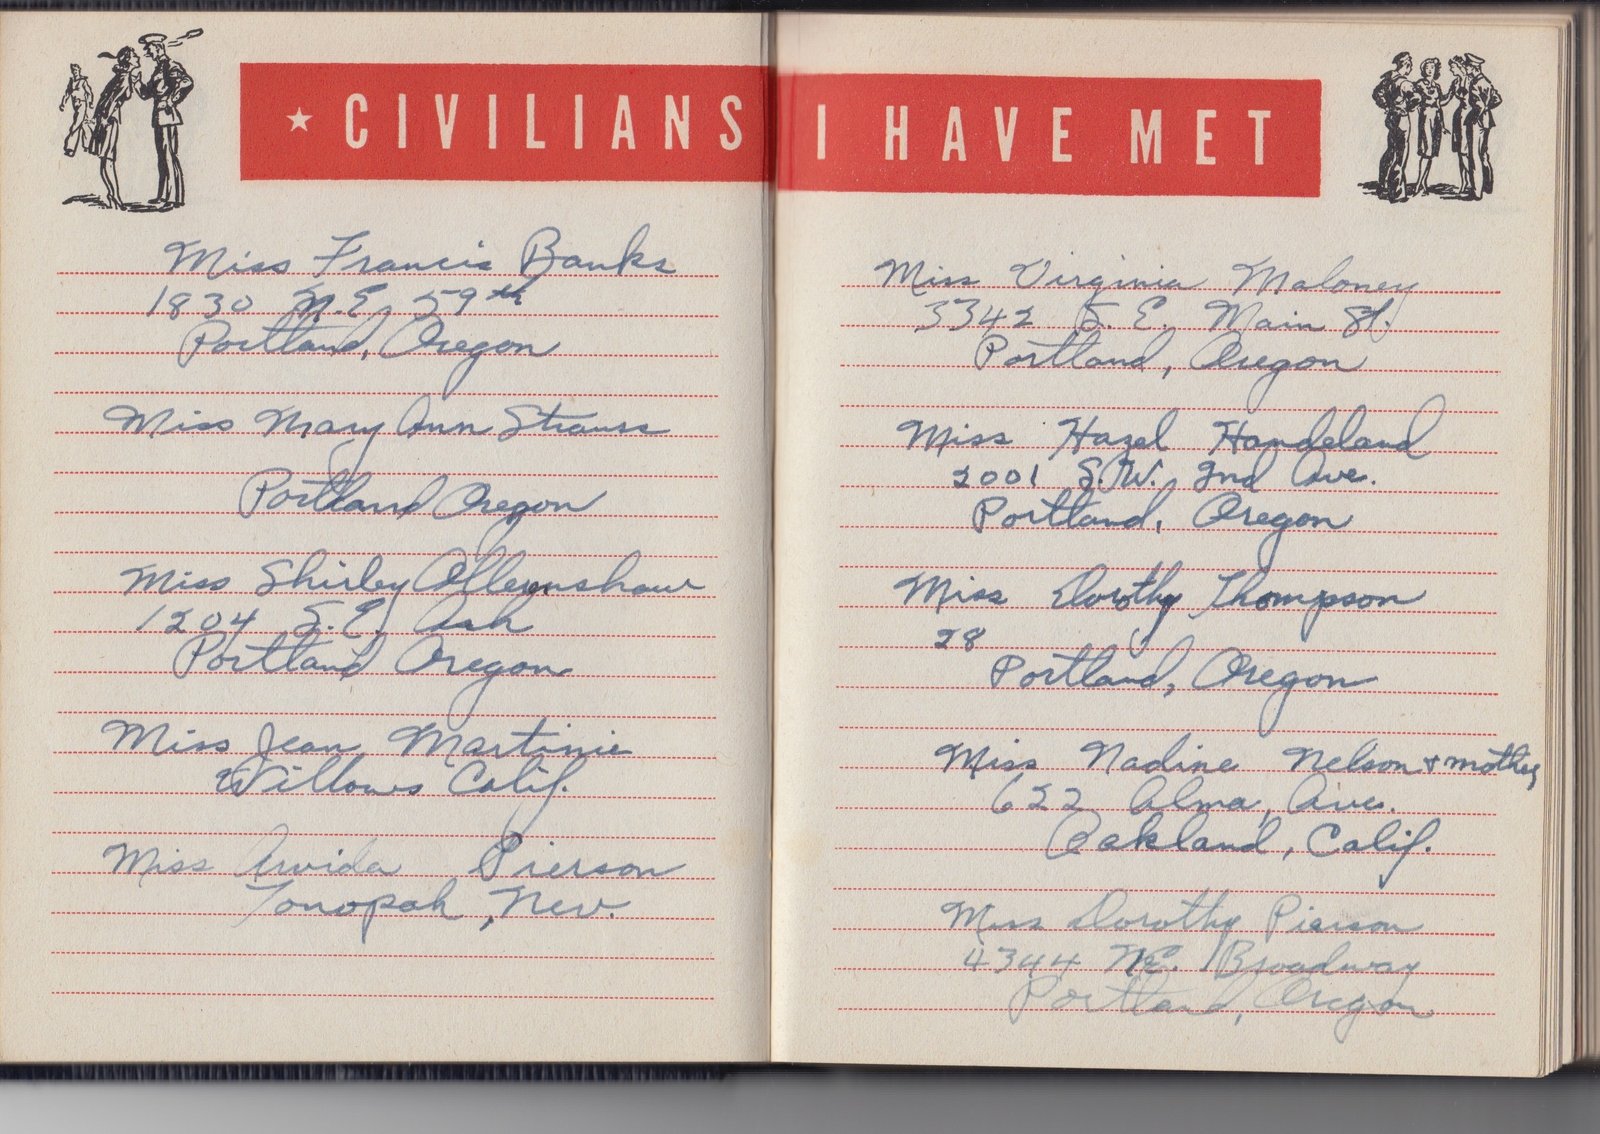 ★ CIVILIANS I HAVE MET
Miss Francis Banks
1830 N.E. 59th
Portland, Oregon
Miss Mary Ann Strauss
Portland Oregon
Miss Shirley Ollerenshaw
1204 S.E. Ash
Portland Oregon
Miss Jean Martinie
Willows Calif.
Miss Arvida Pierson
Tonopah, Nev.
Miss Virginia Maloney
3342 S.E. Main St.
Portland, Oregon
Miss Hazel Handeland
2001 S.W. 2nd Ave.
Portland, Oregon
Miss Dorothy Thompson
28
Portland, Oregon
Miss Nadine Nelson + mother
622 Alma, Ave.
Oakland, Calif.
Miss Dorothy Pierson
4344 NE. Broadway
Portland, Oregon